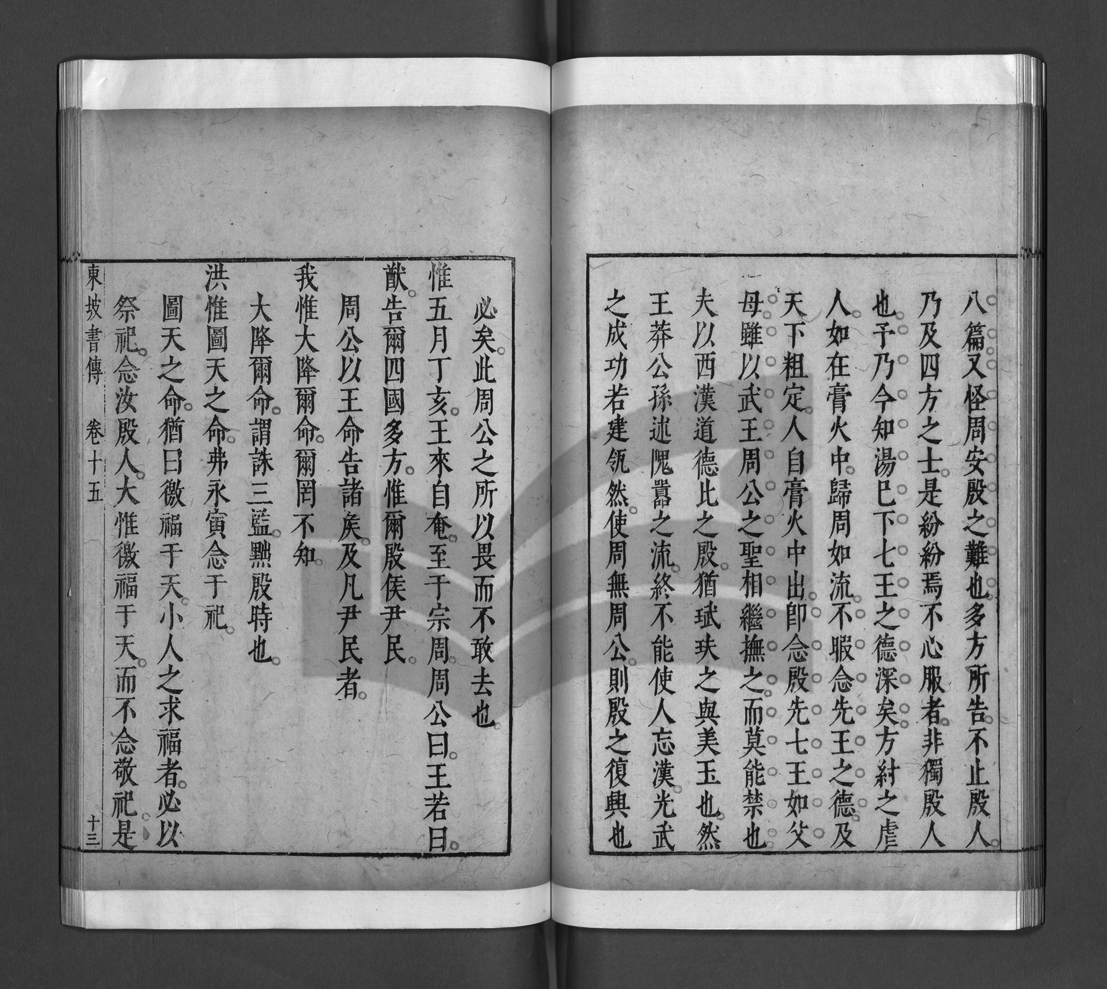 八篇又怪周安殷之難也多方所告不止殷人
乃及四方之士是紛紛焉不心服者非獨殷人
也予乃今知湯巳下七王之德深矣方紂之虐
人如在膏火中歸周如流不暇念先王之德及
天下粗定人自膏火中出卽念殷先七王如父
母雖以武王周公之聖相繼撫之而莫能禁也
夫以西漢道德比之殷猶珷玞之與美玉也然
王莽公孫述隗囂之流終不能使人忘漢光武
之成功若建瓴然使周無周公則殷之復興也
必矣此周公之所以畏而不敢去也
惟五月丁亥王來自奄至于宗周周公曰王若曰
猷告爾四國多方惟爾殷侯尹民
周公以王命告諸矦及凡尹民者
我惟大降爾命爾罔不知
大降爾命謂誅三監黜殷時也
洪惟圖天之命弗永寅念于祀
圖天之命猶曰徼福于天小人之求福者必以
祭祀念汝殷人大惟徼福于天而不念敬祀是
東坡書傳 卷十五 十三